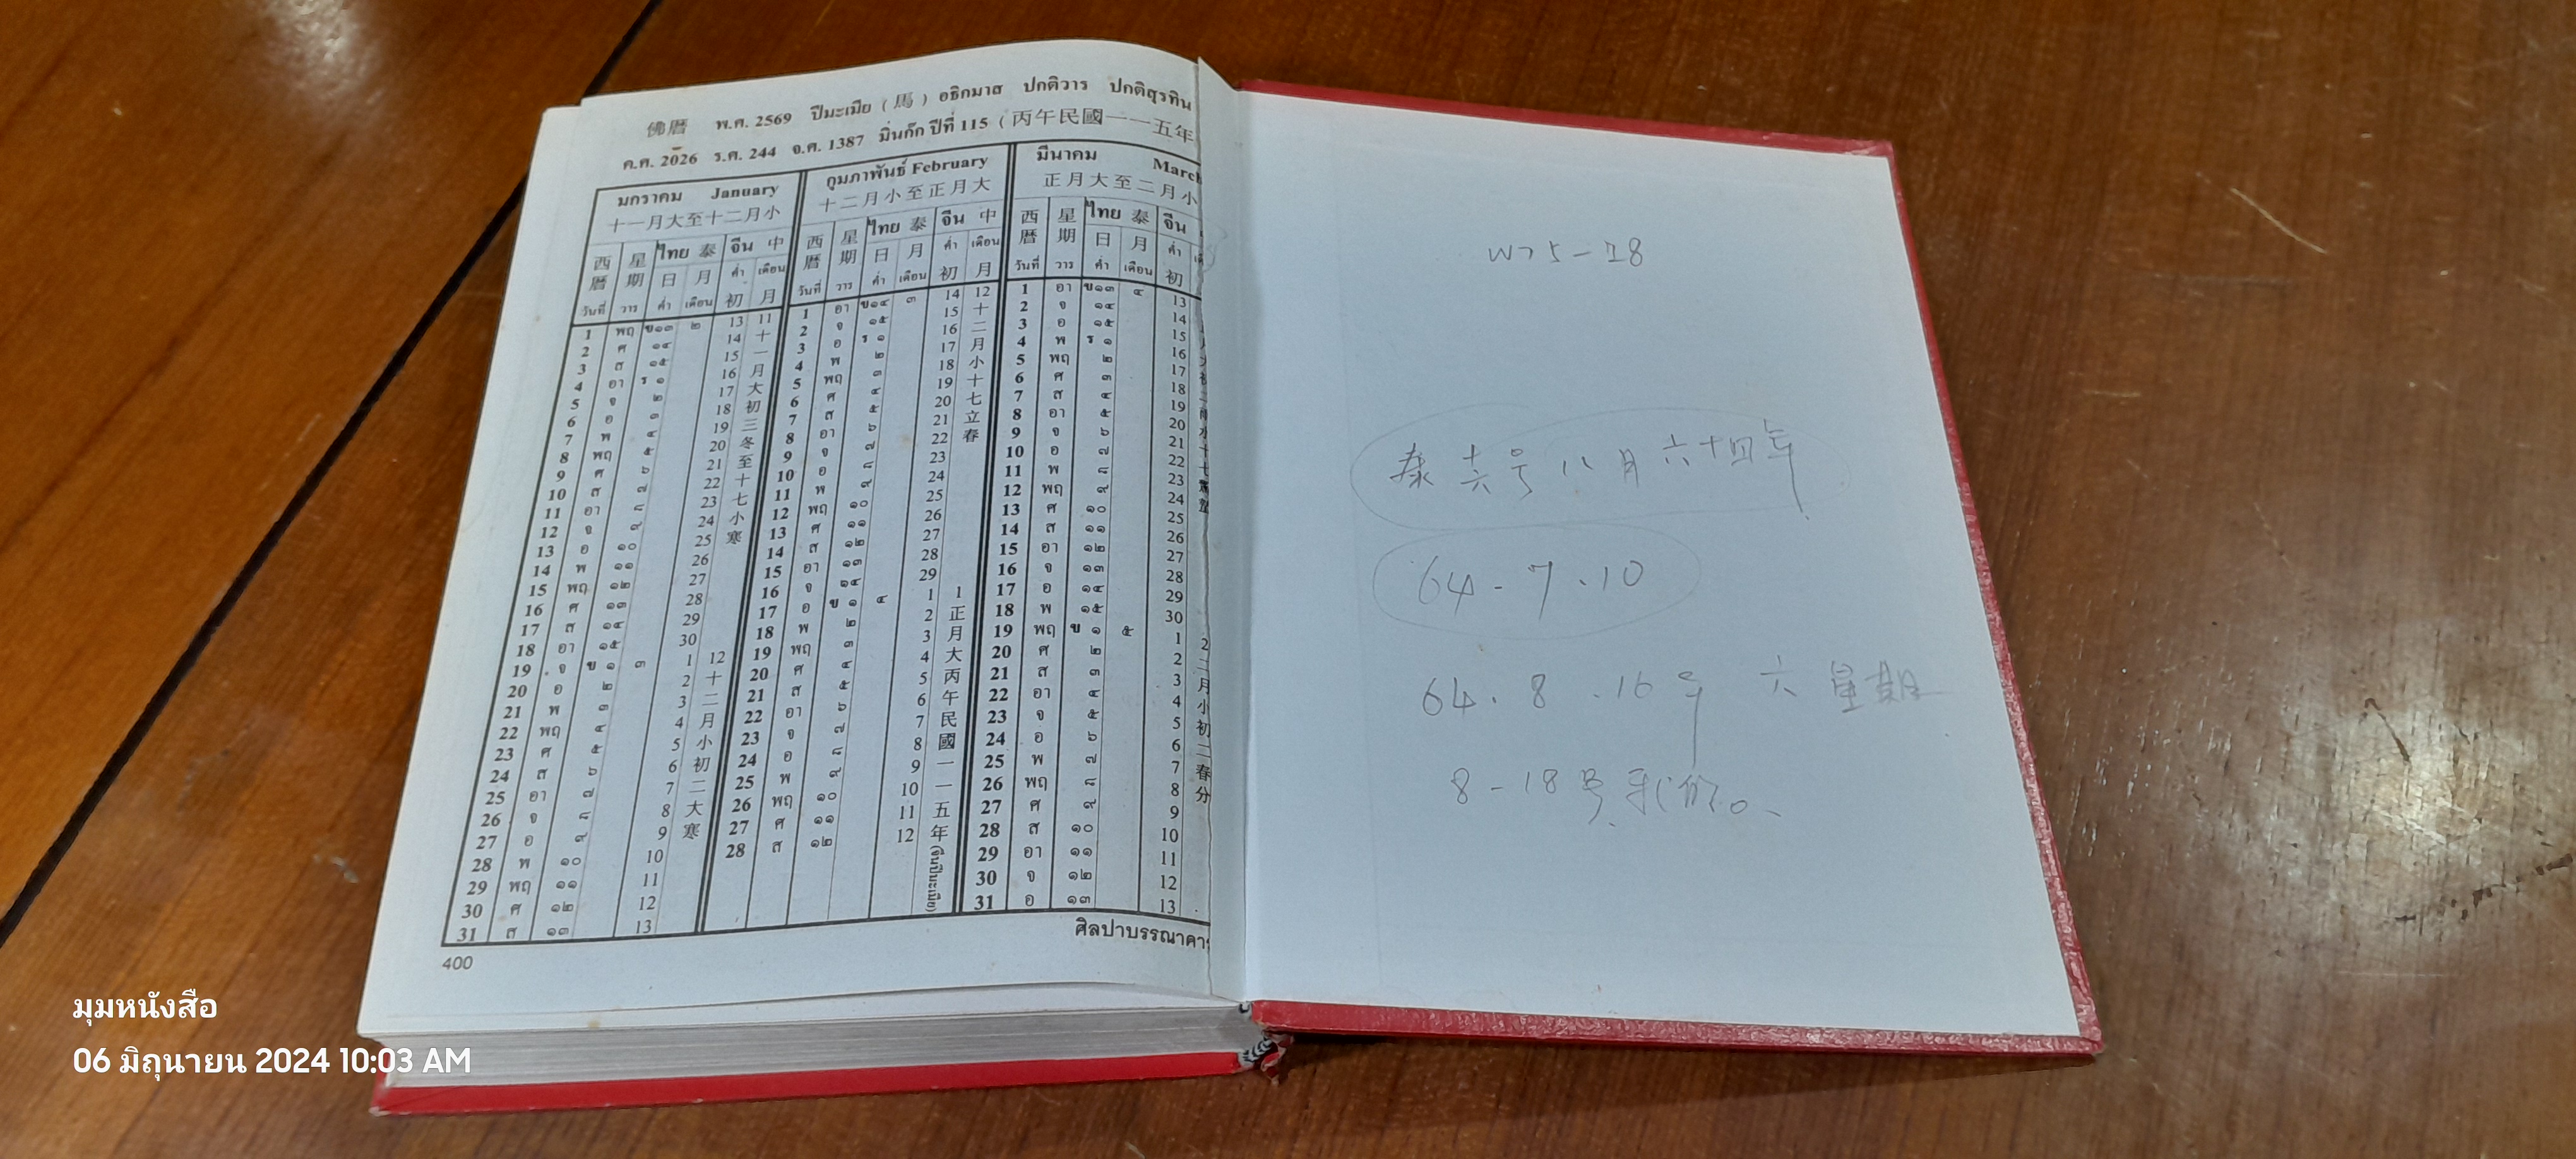 佛曆 พ.ศ. 2569 ปีมะเมีย ( 馬 ) อธิกมาส ปกติวาร ปกติสุรทิน
ค.ศ. 2026 ร.ศ. 244 จ.ศ. 1387 มิ่นก๊ก ปีที่ 115 ( 丙午民國一一五年
มกราคม January
十一月大至十二月小
西曆 星期 ไทย 泰 จีน 中
日 月 ค่ำ เดือน
วันที่ วาร ค่ำ เดือน 初 月
1 พฤ ข๑๓ ๒ 13 11
2 ศ ๑๔ 14 十
3 ส ๑๕ 15 一
4 อา ร ๑ 16 月
5 จ ๒ 17 大
6 อ ๓ 18 初
7 พ ๔ 19 三
8 พฤ ๕ 20 冬
9 ศ ๖ 21 至
10 ส ๗ 22 十
11 อา ๘ 23 七
12 จ ๙ 24 小
13 อ ๑๐ 25 寒
14 พ ๑๑ 26
15 พฤ ๑๒ 27
16 ศ ๑๓ 28
17 ส ๑๔ 29
18 อา ๑๕ 30
19 จ ข ๑ ๓ 1 12
20 อ ๒ 2 十
21 พ ๓ 3 二
22 พฤ ๔ 4 月
23 ศ ๕ 5 小
24 ส ๖ 6 初
25 อา ๗ 7 二
26 จ ๘ 8 大
27 อ ๙ 9 寒
28 พ ๑๐ 10
29 พฤ ๑๑ 11
30 ศ ๑๒ 12
31 ส ๑๓ 13
กุมภาพันธ์ February
十二月小至正月大
西曆 星期 ไทย 泰 จีน 中
日 月 ค่ำ เดือน
วันที่ วาร ค่ำ เดือน 初 月
1 อา ข๑๔ ๓ 14 12
2 จ ๑๕ 15 十
3 อ ร ๑ 16 二
4 พ ๒ 17 月
5 พฤ ๓ 18 小
6 ศ ๔ 19 十
7 ส ๕ 20 七
8 อา ๖ 21 立
9 จ ๗ 22 春
10 อ ๘ 23
11 พ ๙ 24
12 พฤ ๑๐ 25
13 ศ ๑๑ 26
14 ส ๑๒ 27
15 อา ๑๓ 28
16 จ ๑๔ 29
17 อ ข ๑ ๔ 1 1
18 พ ๒ 2 正
19 พฤ ๓ 3 月
20 ศ ๔ 4 大
21 ส ๕ 5 丙
22 อา ๖ 6 午
23 จ ๗ 7 民
24 อ ๘ 8 國
25 พ ๙ 9 一
26 พฤ ๑๐ 10 一
27 ศ ๑๑ 11 五
28 ส ๑๒ 12 年
มีนาคม March
正月大至二月小
西曆 星期 ไทย 泰 จีน
日 月 ค่ำ
วันที่ วาร ค่ำ เดือน 初
1 อา ข๑๓ ๔ 13
2 จ ๑๔ 14
3 อ ๑๕ 15
4 พ ร ๑ 16
5 พฤ ๒ 17
6 ศ ๓ 18
7 ส ๔ 19
8 อา ๕ 20
9 จ ๖ 21
10 อ ๗ 22
11 พ ๘ 23
12 พฤ ๙ 24
13 ศ ๑๐ 25
14 ส ๑๑ 26
15 อา ๑๒ 27
16 จ ๑๓ 28
17 อ ๑๔ 29
18 พ ๑๕ 30
19 พฤ ข ๑ ๕ 1 2
20 ศ ๒ 2 二
21 ส ๓ 3 月
22 อา ๔ 4 小
23 จ ๕ 5 初
24 อ ๖ 6 二
25 พ ๗ 7 春
26 พฤ ๘ 8 分
27 ศ ๙ 9
28 ส ๑๐ 10
29 อา ๑๑ 11
30 จ ๑๒ 12
31 อ ๑๓ 13
ศิลปาบรรณาคาร
400
十六号 八月 六十四年
64-7.10
64.8.16号 六 星期
8-18号
มุมหนังสือ
06 มิถุนายน 2024 10:03 AM